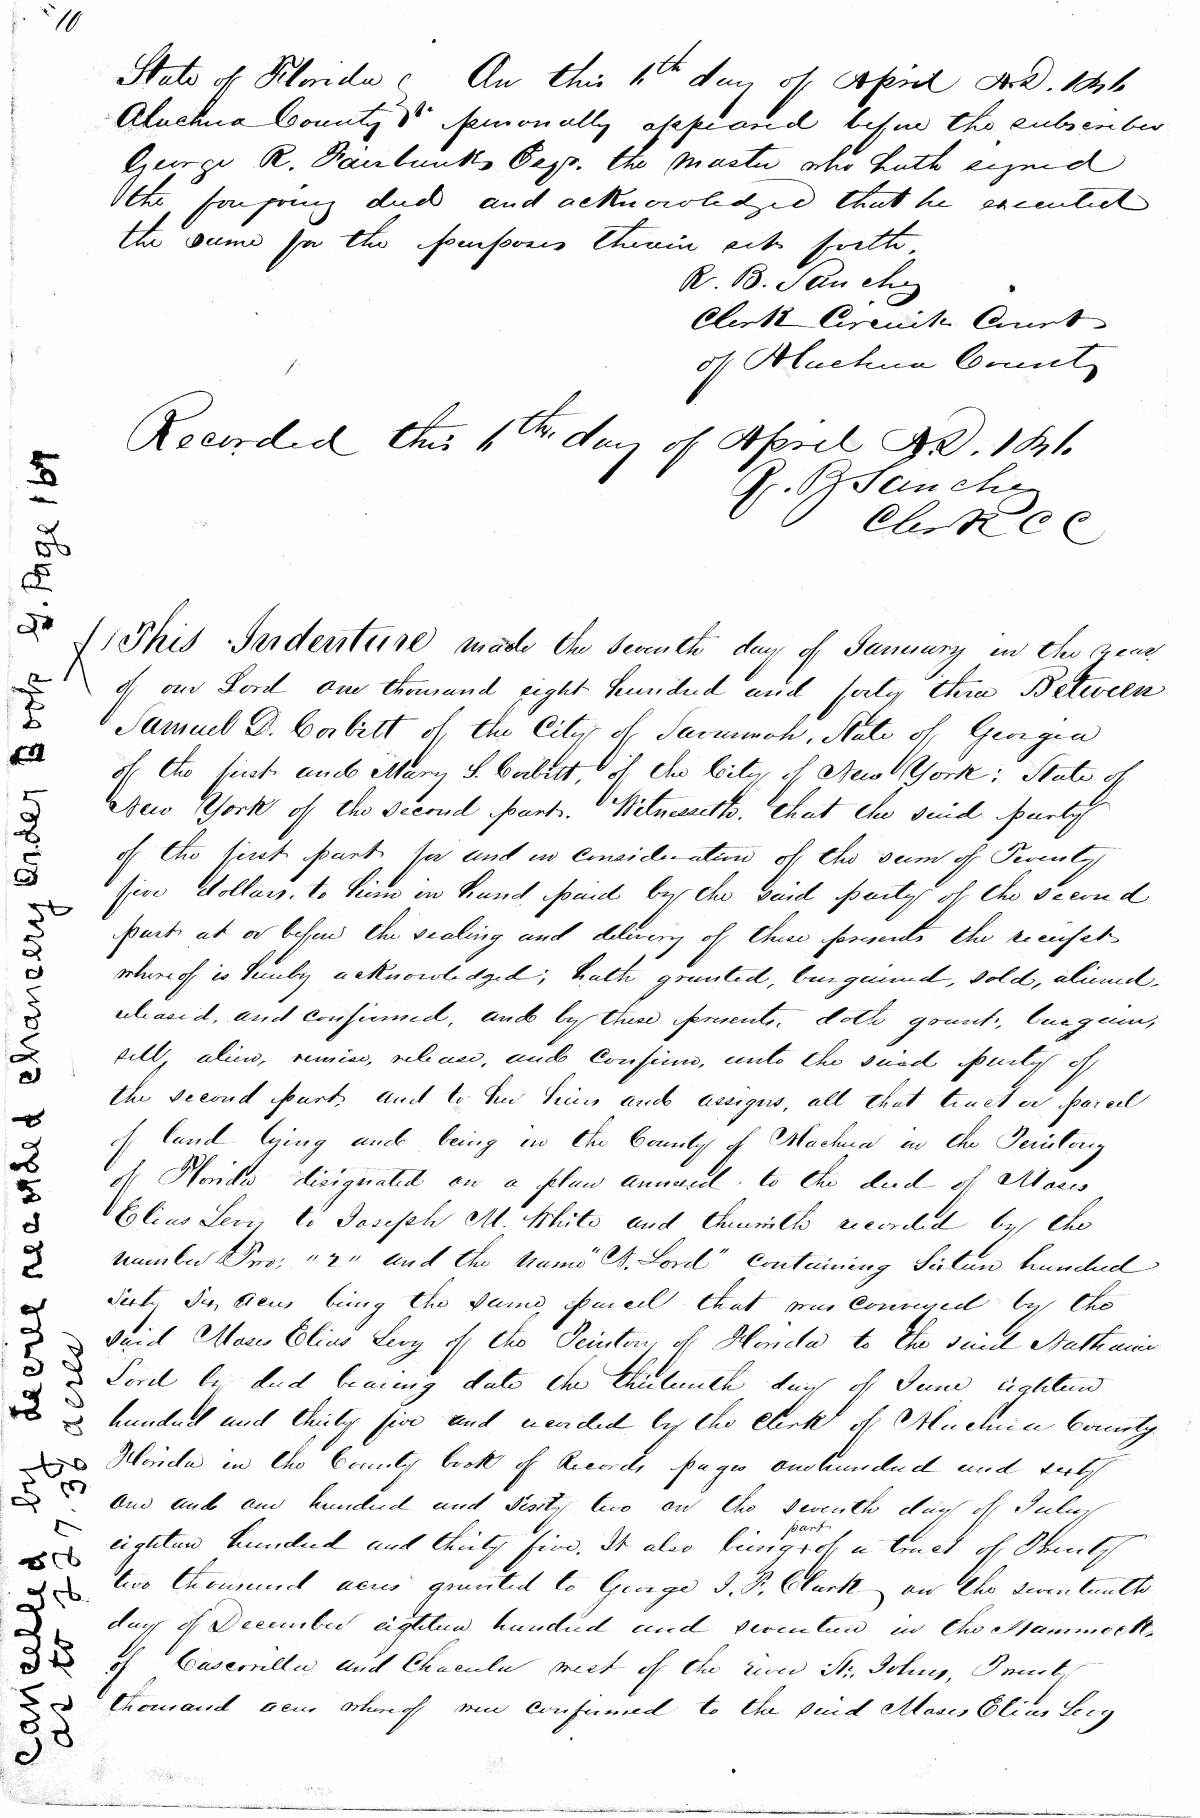 10
State of Florida On this day of April A.D.
Aluchua County ss personally appeared before the subscriber
George R. Fairbanks Esqr. the Master who hath signed
the foregoing deed and acknowledged that he executed
the same for the purposes therein set forth.
R. B. Sanchez
Clerk Circuit Court
of Aluchua County
Recorded this day of April A.D.
R. B Sanchez
Clerk C C
This Indenture made the seventh day of January in the year
of our Lord one thousand eight hundred and forty three Between
Samuel D. Corbitt of the City of Savannah, State of Georgia
of the first and Mary S. Corbitt, of the City of New York; State of
New York of the second part. Witnesseth. that the said party
of the first part for and in consideration of the sum of Seventy
five dollars. to him in hand paid by the said party of the second
part at or before the sealing and delivery of these presents the receipt
whereof is hereby acknowledged; hath granted, bargained, sold, aliened.
released, and confirmed, and by these presents. doth grant, bargain,
sell, alien, remise, release, and confirm, unto the said party of
the second part, and to her heirs and assigns, all that tract or parcel
of land lying and being in the County of Alachua in the Territory
of Florida designated on a plan annexed to the deed of Moses
Elias Levy to Joseph M. White and therewith recorded by the
number "2" and the name "N. Lord" containing Sixteen hundred
Sixty Six acres being the same parcel that was conveyed by the
said Moses Elias Levy of the Territory of Florida to the said Nathanie
Lord by deed bearing date the thirteenth day of June eighteen
hundred and thirty five and recorded by the Clerk of Aluchua County
Florida in the County book of Records pages one hundred and sixty
one and one hundred and Sixty two on the seventh day of July
eighteen hundred and thirty five. It also being part of a tract of Twenty
two thousand acres granted to George I. F. Clark on the seventeenth
day of December eighteen hundred and seventeen in the Hammock.
of Cuscowilla and Chacala west of the river St. Johns, Twenty
thousand acres whereof were confirmed to the said Moses Elias Levy
Cancelled by decree recorded chancery order Book Page 167
as to 227.36 acres